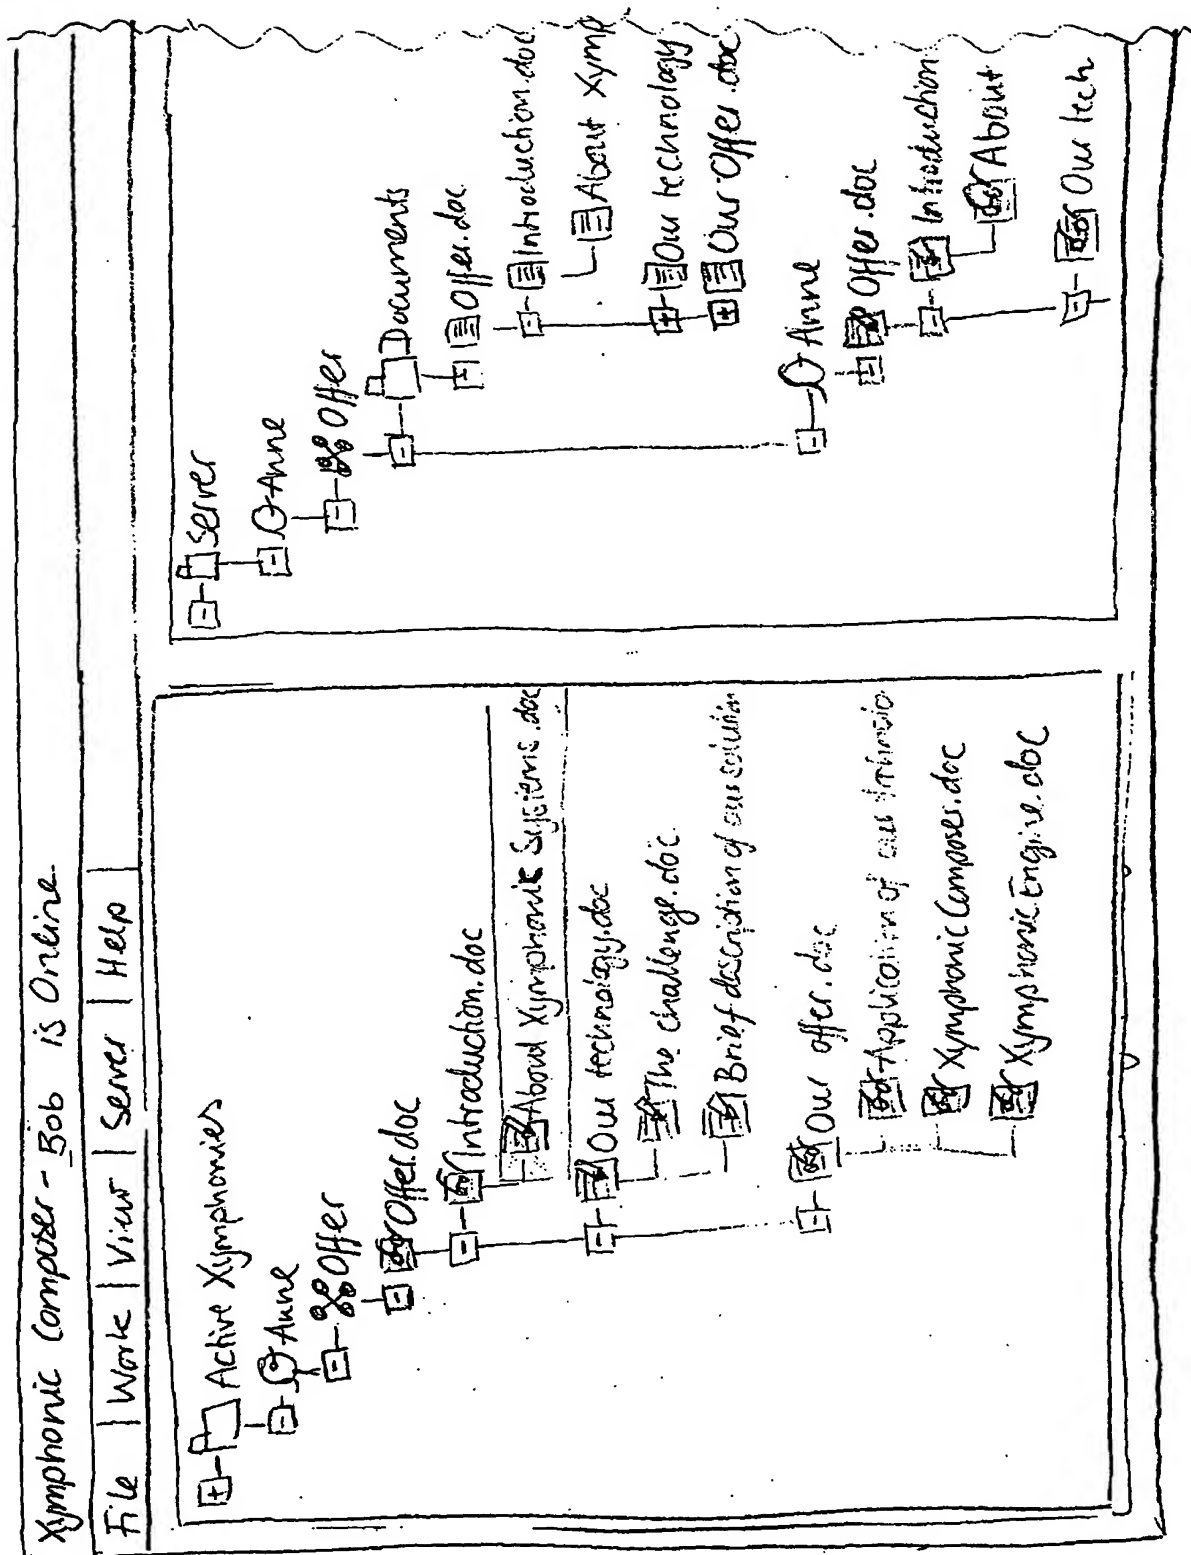 Xymphonic Composer - Bob is Online
File | Work | View | Server | Help
Active Xymphonies
Anne
Offer
Offer.doc
Introduction.doc
About Xymphonic Systems.doc
Our technology.doc
The challenge.doc
Brief description of our solution
Our offer.doc
Application of our
Xymphonic Composer.doc
Xymphonic Engine.doc
Server
Anne
Offer
Documents
Offer.doc
Introduction.doc
About Xymp
Our technology
Our Offer.doc
Anne
Offer.doc
Introduction
About
Our tech